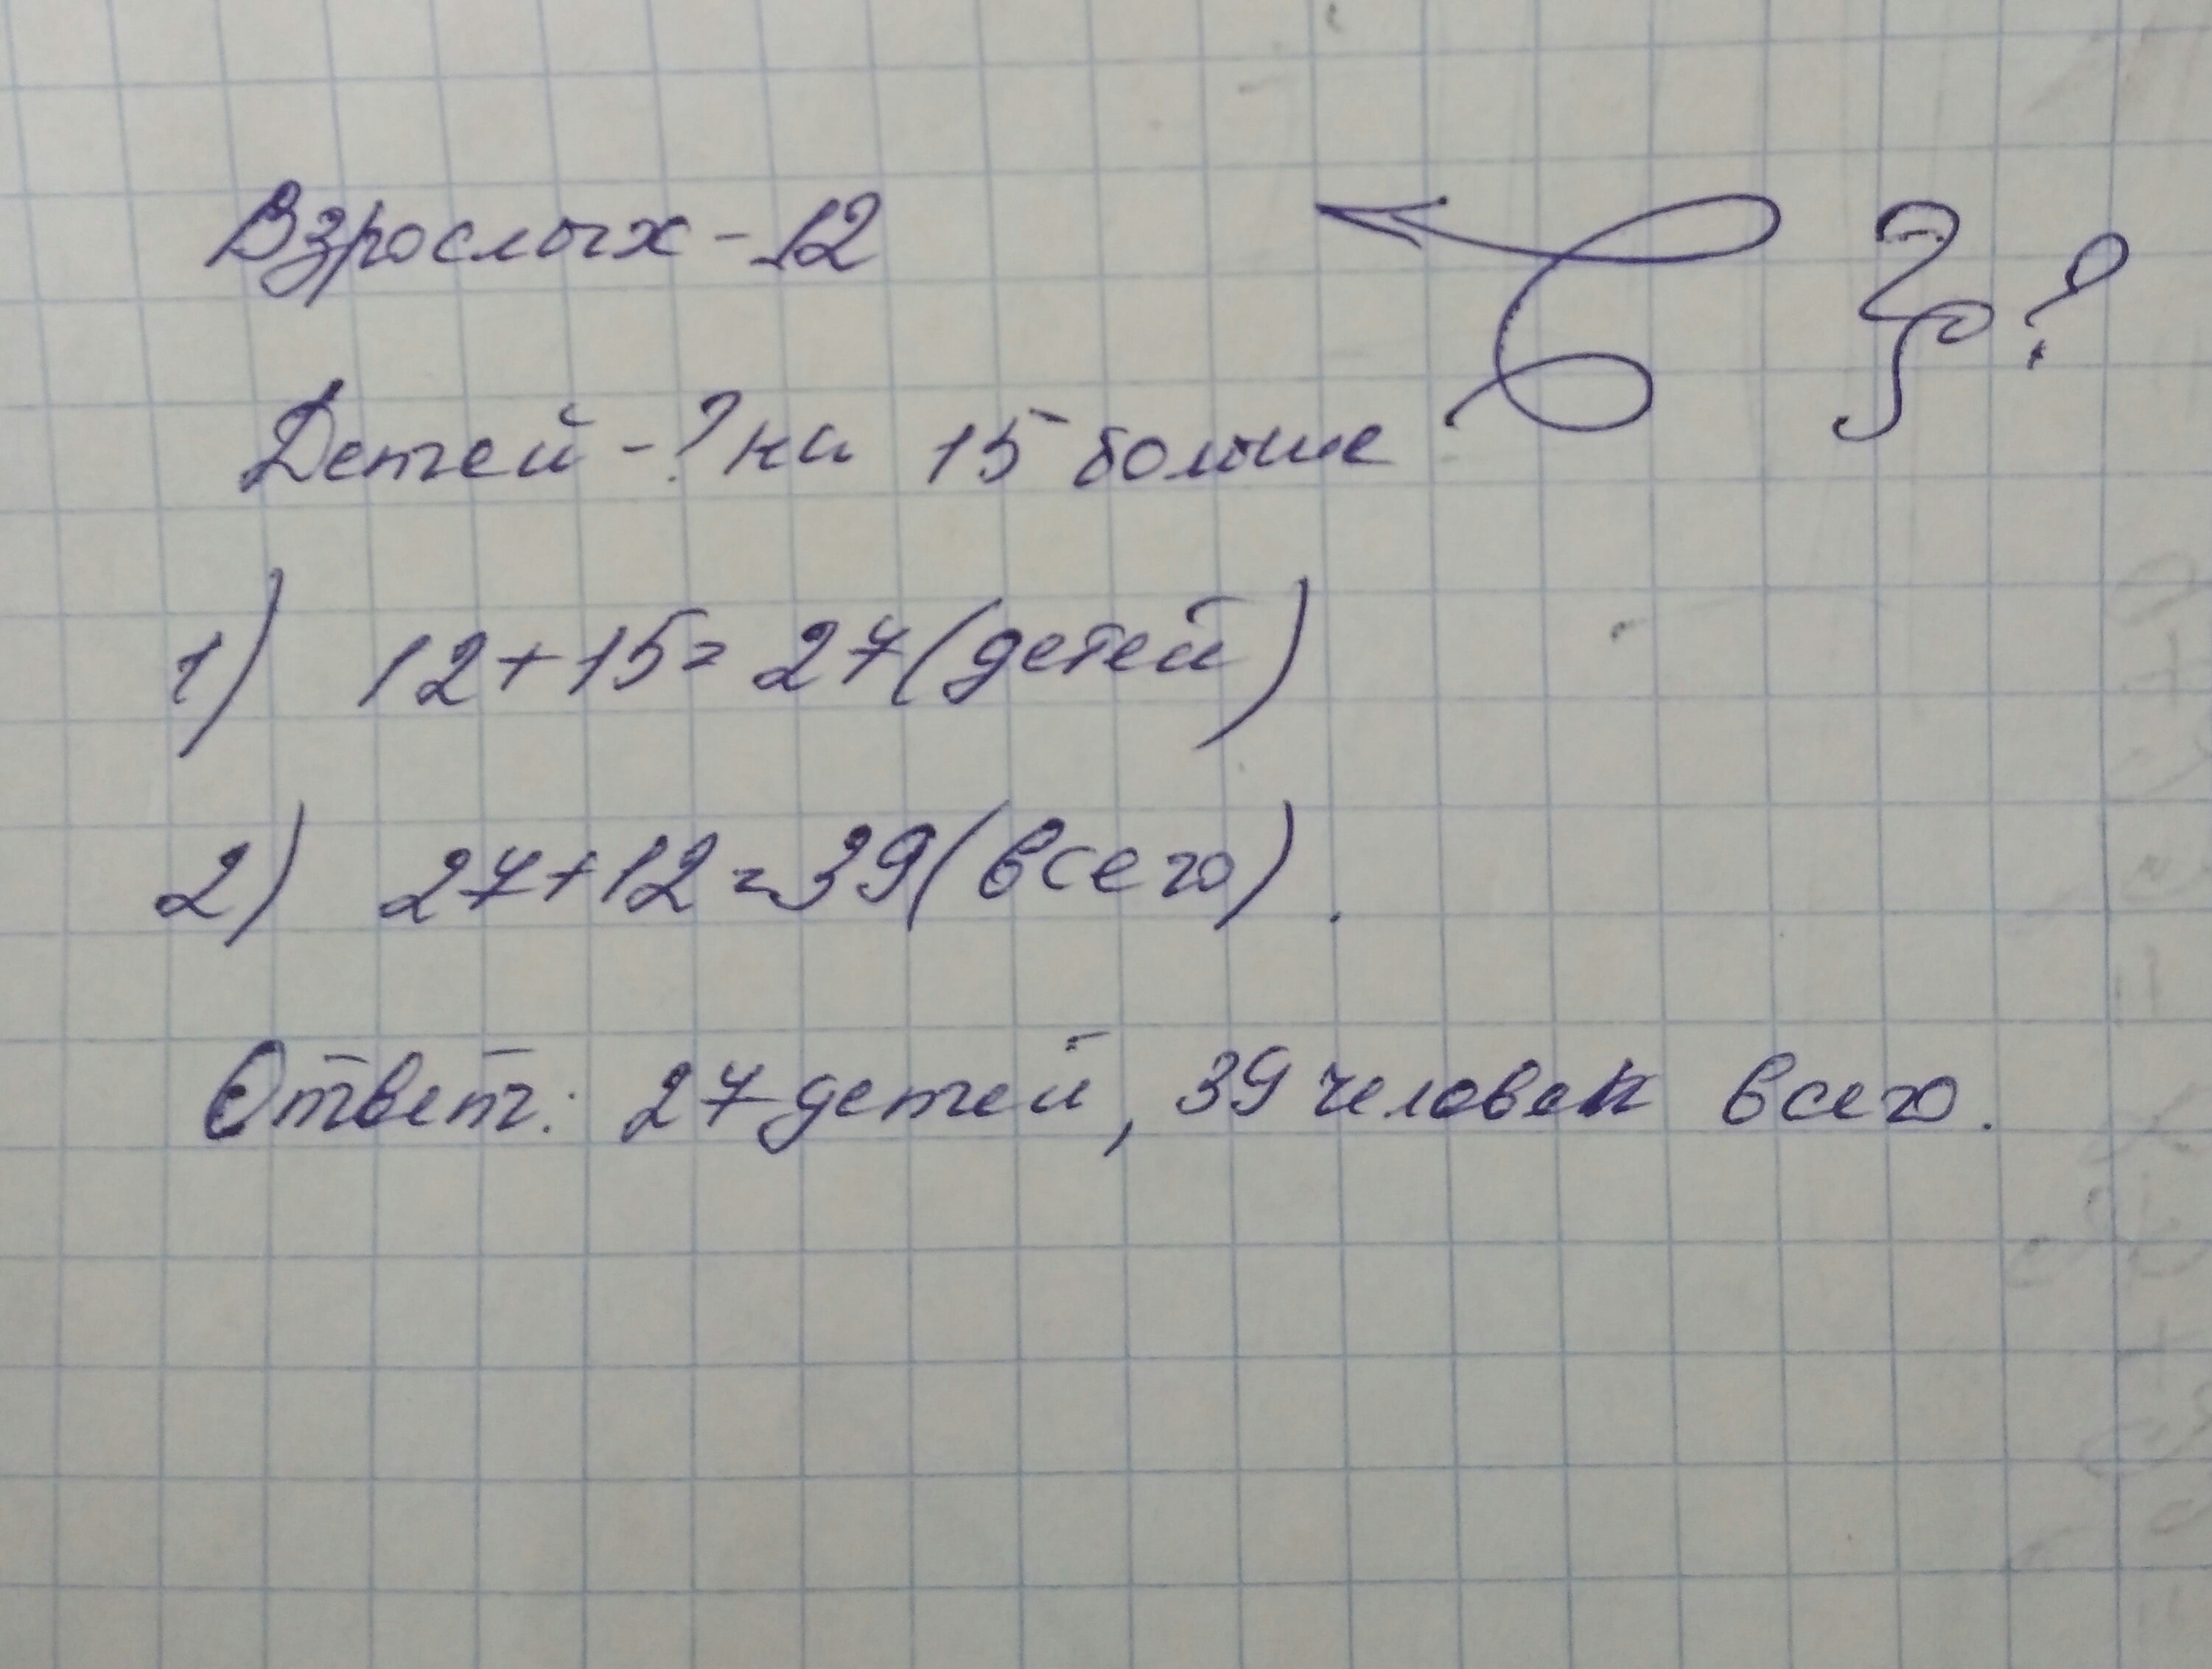 Взрослых - 12
?
Детей - ? на 15 больше
1) 12+15=27(детей)
2) 27+12=39(всего).
Ответ: 27 детей, 39 человек всего.